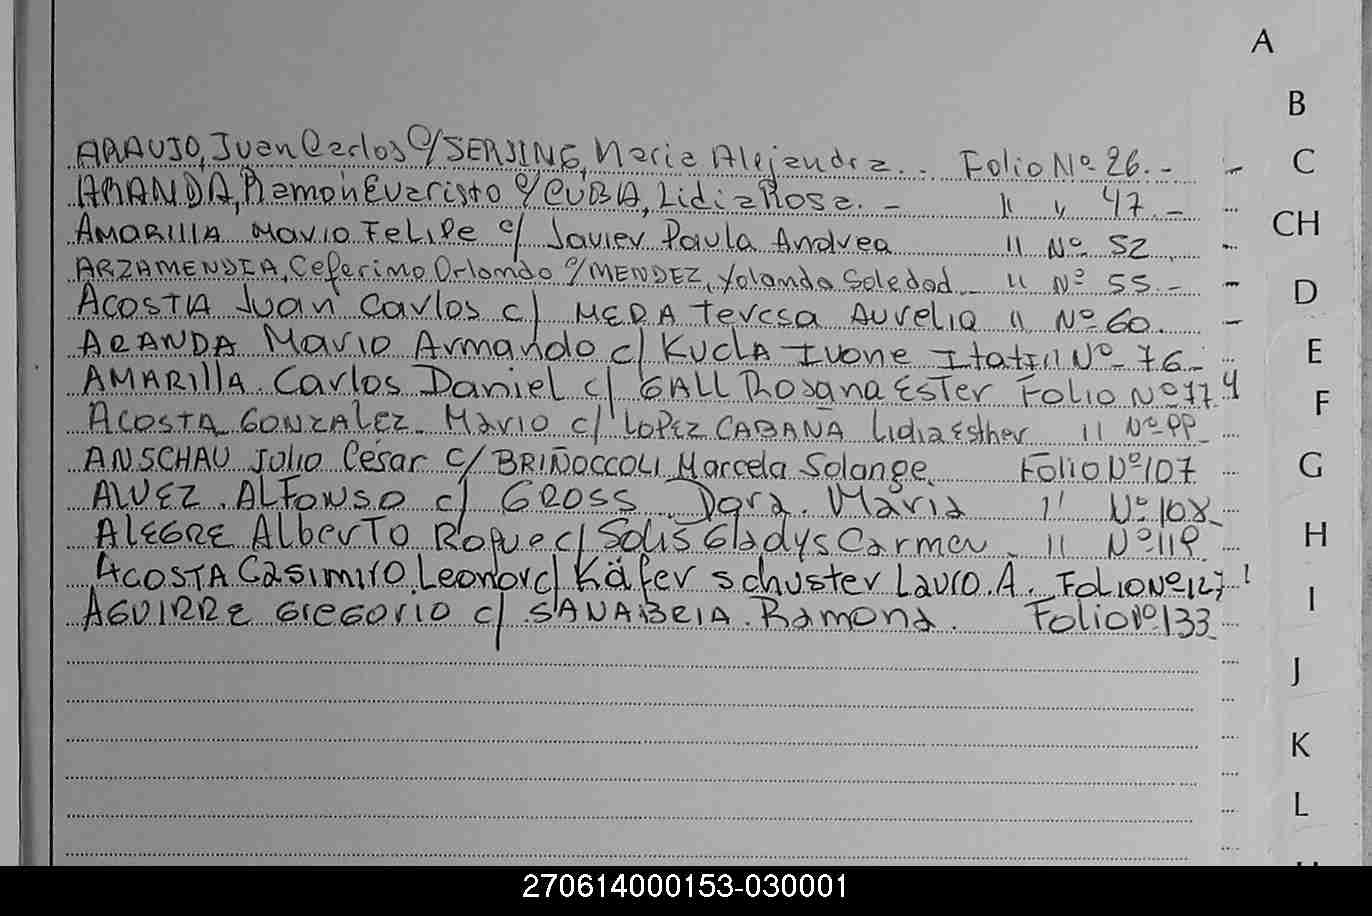 A
B
ARAUJO, Juan Carlos C/SERJING, Maria Alejandra... Folio Nº 26.-
C
ARANDA, Ramon Evaristo C/CUBIA, Lidia Rosa.- " " 47.-
CH
AMARIllA MARIO FeLiPe c/ Javier Paula Andrea " Nº 52
ARZAMENDIA, Ceferimo Orlamdo C/MENDEZ, Yolanda Soledad - " Nº 55.-
D
ACOSTA Juan Carlos c/ MEDA Teresa AURELIA " Nº 60.
ARANDA MARIO Armando c/ KUCLA IVONE Itatii " Nº 76-
E
AMARIllA. Carlos Daniel c/ GALL Rosana EsTer Folio Nº 77
F
ACOSTA GONZALEZ. Mario c/ LOPEZ CABAÑA Lidia Esther " Nº 99
ANSCHAU Julio César C/ BRIÑOCCOLI Marcela Solange. Folio Nº 107
G
ALVEZ. ALFONSO c/ GROSS Dora. Maria " Nº 108
ALEGRE AlberTO Roque c/ Solis Gladys Carmen - " Nº 119
H
ACOSTA Casimiro Leonor c/ Käfer schuster Lauro. A. Folio Nº 127
AGUIRRE Gregorio c/ SANABRIA. Ramona. Folio Nº 133
I
J
K
L
270614000153-030001